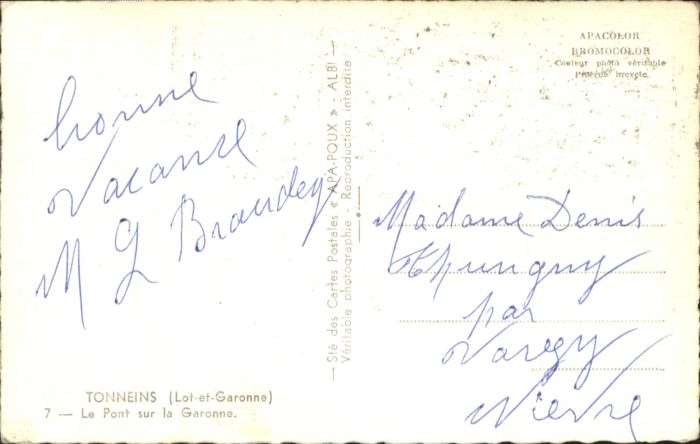 bonne
vacanse
M G Brandey
TONNEINS (Lot-et-Garonne)
7 — Le Pont sur la Garonne.
— Sté des Cartes Postales « APA-POUX » - ALBI —
Véritable photographie - Reproduction interdite
APACOLOR
BROMOCOLOR
Couleur photo véritable
Procédé breveté.
Madame Denis
par
Varzy
Nièvre